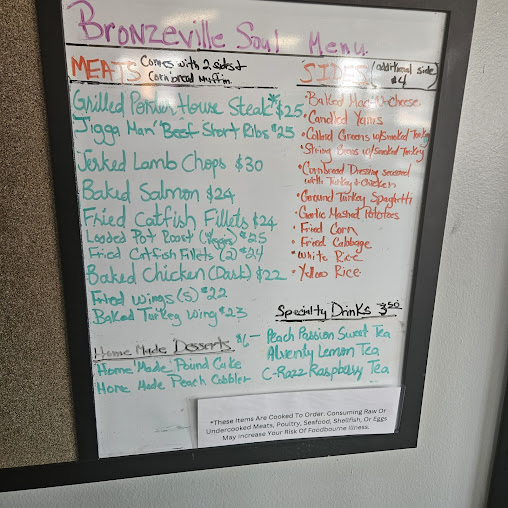 Bronzeville Soul Menu
MEATS Comes with 2 sides +
Cornbread Muffin.
Grilled Porter House Steak* $25
Jigga Man' Beef Short Ribs $25
Jerked Lamb Chops $30
Baked Salmon $24
Fried Catfish Fillets $24
Loaded Pot Roast $25
Fried Catfish Fillets (2) $24
Baked Chicken (Dark) $22
Fried Wings (5) $22
Baked Turkey Wing $23
Home Made Desserts $6
Home Made Pound Cake
Home Made Peach Cobbler
SIDES (additional side
$4
•Baked Mac-n-cheese
•Candied Yams
•Collard Greens w/smoked Turkey
•String Beans w/smoked Turkey
•Cornbread Dressing seasoned
with Turkey & chicken
•Ground Turkey Spaghetti
•Garlic Mashed Potatoes
•Fried Corn
•Fried Cabbage
•White Rice
•Yellow Rice
Specialty Drinks 3.50
Peach Passion Sweet Tea
Alventy Lemon Tea
C-Razz Raspberry Tea
*These Items Are Cooked To Order. Consuming Raw Or
Undercooked Meats, Poultry, Seafood, Shellfish, Or Eggs
May Increase Your Risk Of Foodbourne Illness.